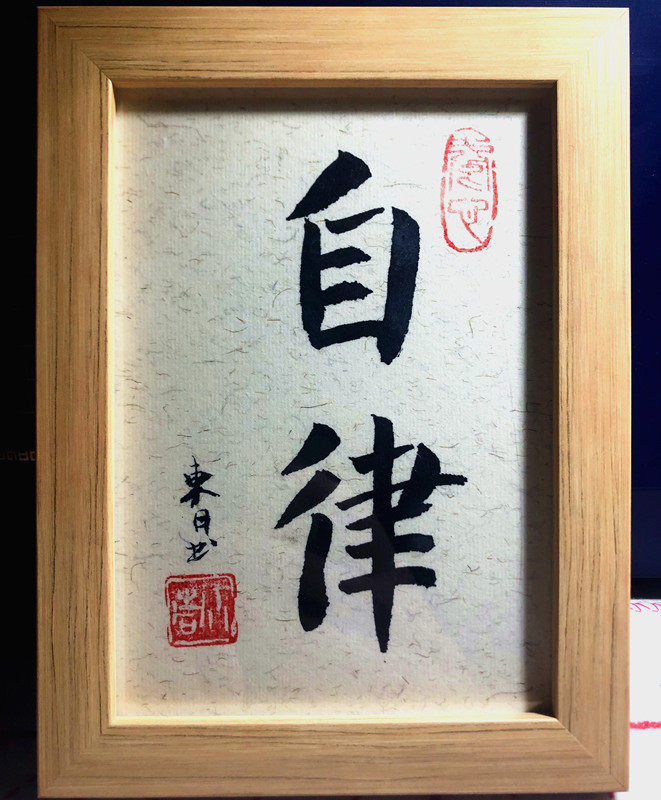 自律
東日书